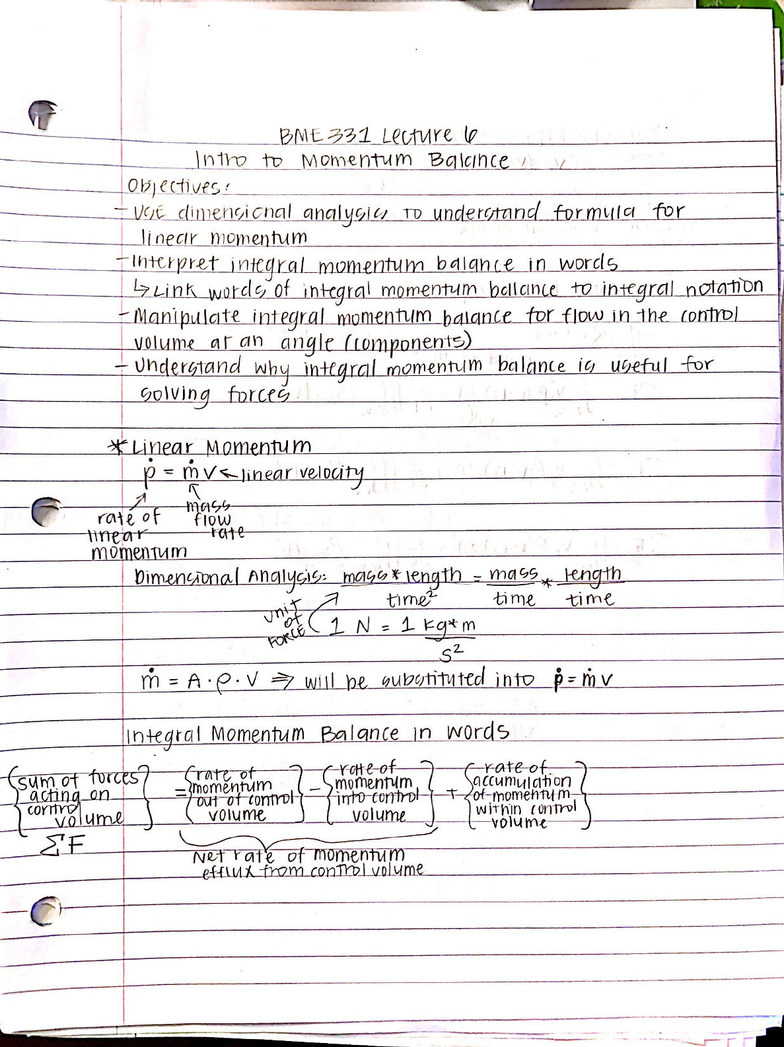 BME 331 Lecture 6
Intro to Momentum Balance
Objectives:
- Use dimensional analysis to understand formula for
linear momentum
- Interpret integral momentum balance in words
↳ Link words of integral momentum balance to integral notation
- Manipulate integral momentum balance for flow in the control
volume at an angle (components)
- Understand why integral momentum balance is useful for
solving forces
* Linear Momentum
ṗ = ṁ v ← linear velocity
rate of linear momentum
mass flow rate
Dimensional Analysis: mass * length / time² = mass / time * length / time
unit of force
1 N = 1 kg*m / s²
ṁ = A · ρ · V ⇒ will be substituted into ṗ = ṁ v
Integral Momentum Balance in words
{sum of forces acting on control volume} = {rate of momentum out of control volume} - {rate of momentum into control volume} + {rate of accumulation of momentum within control volume}
ΣF
Net rate of momentum
efflux from control volume